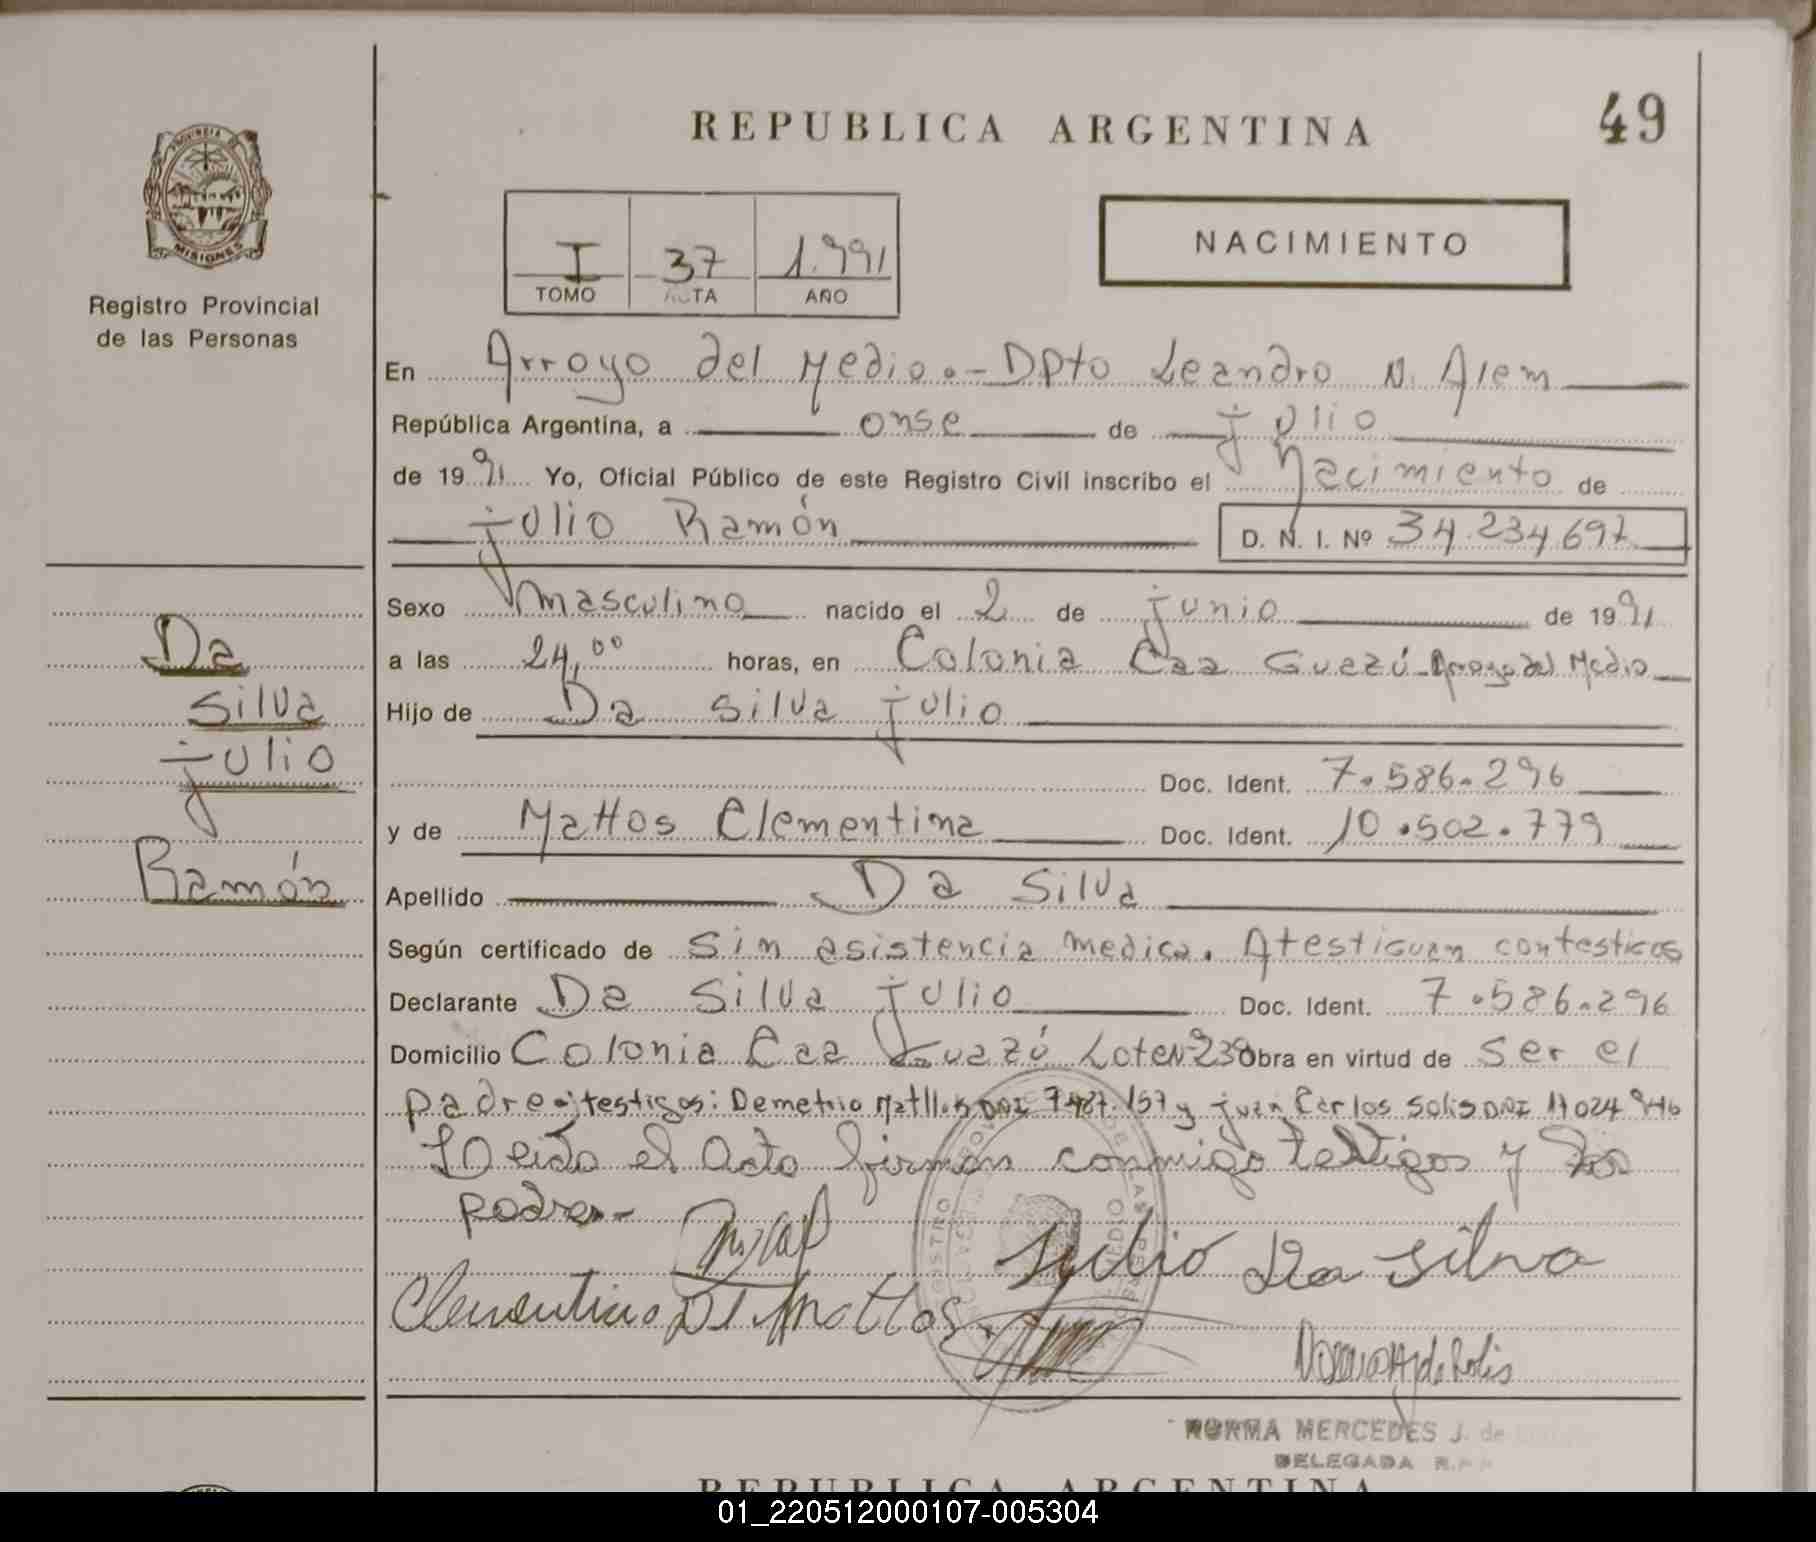 REPUBLICA ARGENTINA
49
PROVINCIA DE
MISIONES
Registro Provincial
de las Personas
I 37 1.991
TOMO ACTA AÑO
NACIMIENTO
En Arroyo del Medio.- Dpto Leandro N. Alem
República Argentina, a onse de julio
de 1991 Yo, Oficial Público de este Registro Civil inscribo el Nacimiento de
julio Ramón D. N. I. Nº 34.234.697
Sexo masculino nacido el 2 de junio de 1991
a las 24,00 horas, en Colonia Caa Guazú-Arroyo del Medio
Hijo de Da silva julio
Doc. Ident. 7.586.296
y de Mattos Clementina Doc. Ident. 10.502.779
Apellido Da Silva
Según certificado de Sin asistencia medica. Atestiguan contestigos
Declarante Da Silva julio Doc. Ident. 7.586.296
Domicilio Colonia Caa Guazú Lote Nº239 Obra en virtud de ser el
padre testigos: Demetrio DNI 7.487.157 y juan Carlos Solis DNI
Leída el Acta firman conmigo testigos y los
padres.-
Julio Da Silva
Clementina D. Mattos
NORMA MERCEDES J. de
DELEGADA R.P.P.
Da
silva
julio
Ramón
REPUBLICA ARGENTINA
01_220512000107-005304